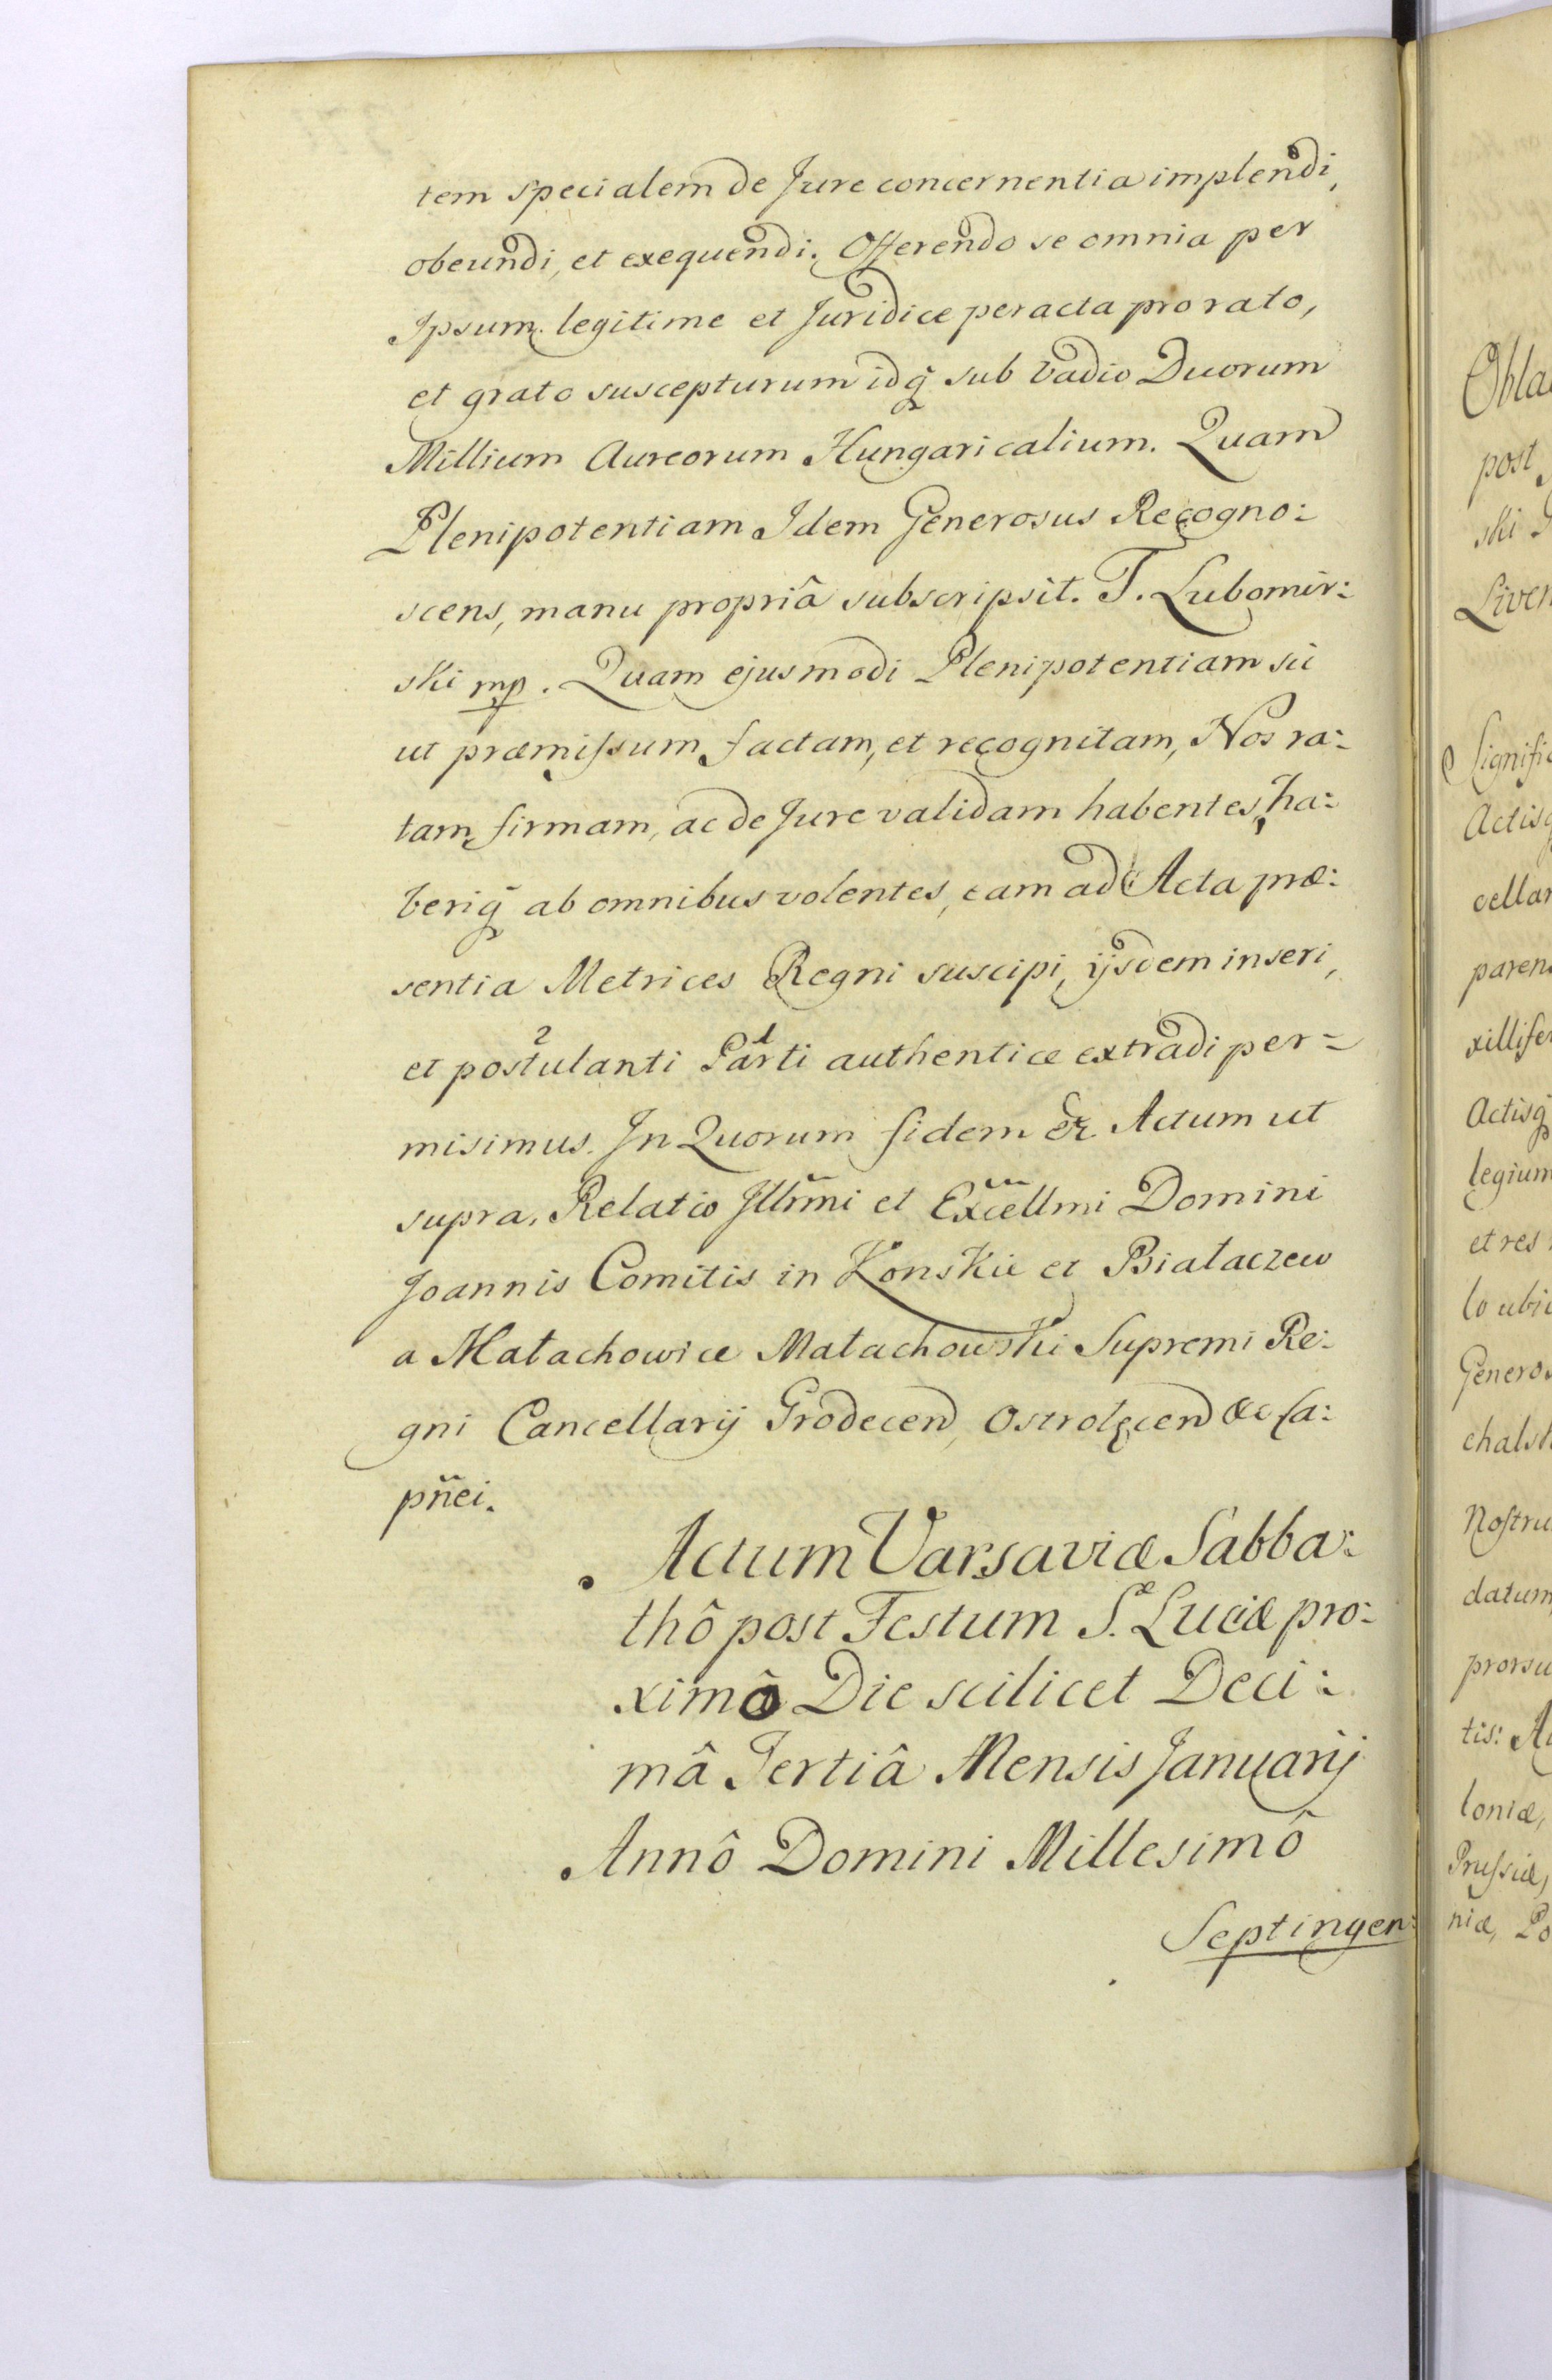 tem specialem de Jure concernentia implendi,
obeundi, et exequendi. Offerendo se omnia per
Ipsum legitime et Juridice peracta pro rato,
et grato suscepturum idq̃ sub vadio Duorum
Millium Aureorum Hungaricalium. Quam
Plenipotentiam Idem Generosus Recogno:
scens, manu propriâ subscripsit. T. Lubomir:
ski mp. Quam ejusmodi Plenipotentiam sic
ut præmissum factam, et recognitam, Nos ra:
tam, firmam, ac de Jure validam habentes, ha:
beriq̃ ab omnibus volentes, eam ad Acta præ:
sentia Metrices Regni suscipi, ijsdem inseri,
et postulanti Parti authentice extradi per=
misimus. In Quorum fidem &c Actum ut
supra. Relatio Jllrm̃i et Excellm̃i Domini
Joannis Comitis in Konskie et Białaczew
a Małachowice Małachowski Supremi Re:
gni Cancellarij Grodecen, Ostrolęcen &c Ca:
pn̈ei.
Actum Varsaviæ Sabba:
thô post Festum S.æ Luciæ pro:
ximô Die scilicet Deci:
mâ Tertiâ Mensis Januarij
Annô Domini Millesimô
Septingen:
Obla
post
ski G
Liven
Signific
Actisq
cellar
paren
xillifer
Actisq̃
legium
et res
lo ubi
Generos
chalsk
Nostru
datum
prorsu
tis: A
loniæ,
Prussiæ,
niæ, Po